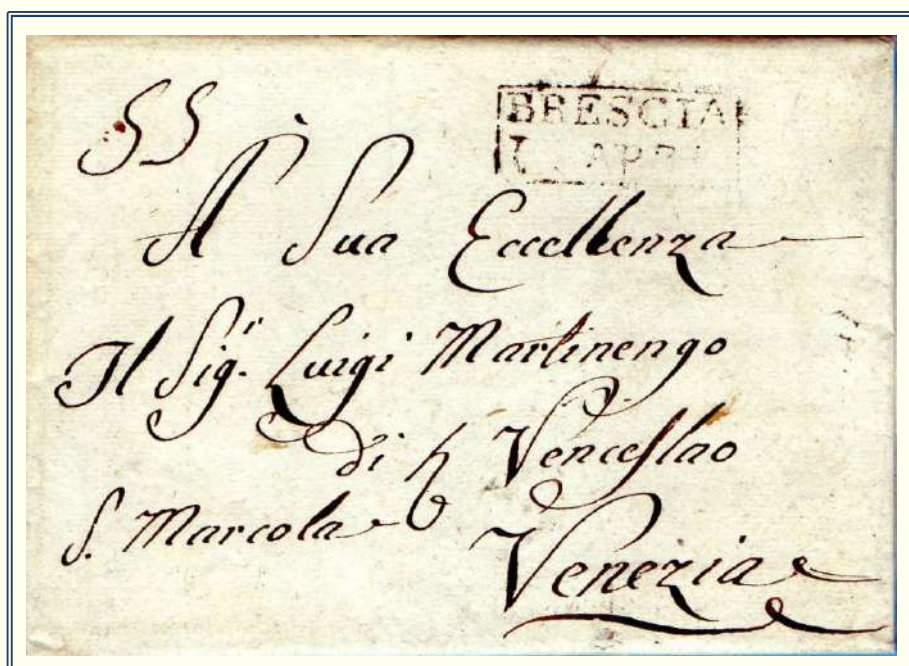 SS
BRESCIA
APR
À Sua Eccellenza
Il Sig.r Luigi Martinengo
di Venceslao
S. Marcola
Venezia